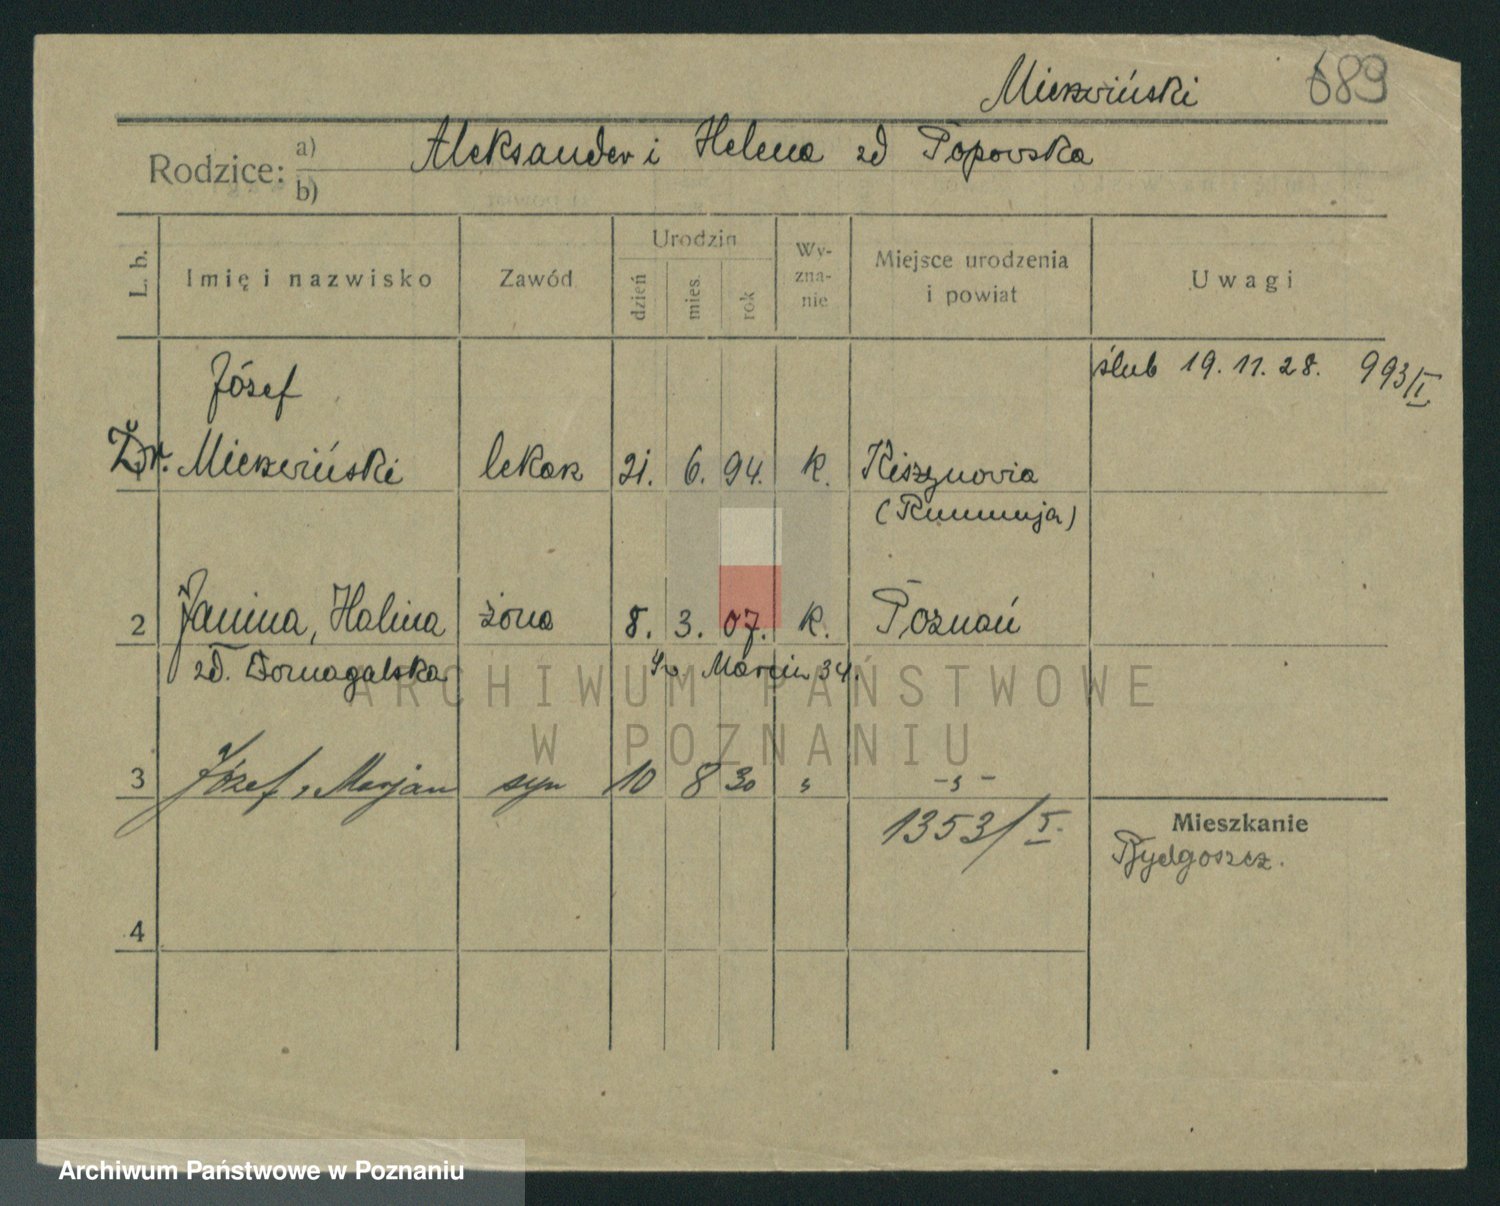 Mierzwiński 689
Rodzice: a) Aleksander i Helena zd Popowska
b)
L. b. Imię i nazwisko Zawód Urodzin dzień mies. rok Wy-zna-nie Miejsce urodzenia i powiat Uwagi
ślub 19. 11. 28. 993/I
Józef
Dr. Mierzwiński lekarz 21. 6. 94. k. Kiszynovia
(Rumunja)
2 Janina, Halina żona 8. 3. 07. k. Poznań
zd. Domagalska Św. Marcin 34.
3 Józef, Marjan syn 10 8 30 " - " -
1353/I.
Mieszkanie
Bydgoszcz.
4
ARCHIWUM PAŃSTWOWE
W POZNANIU
Archiwum Państwowe w Poznaniu